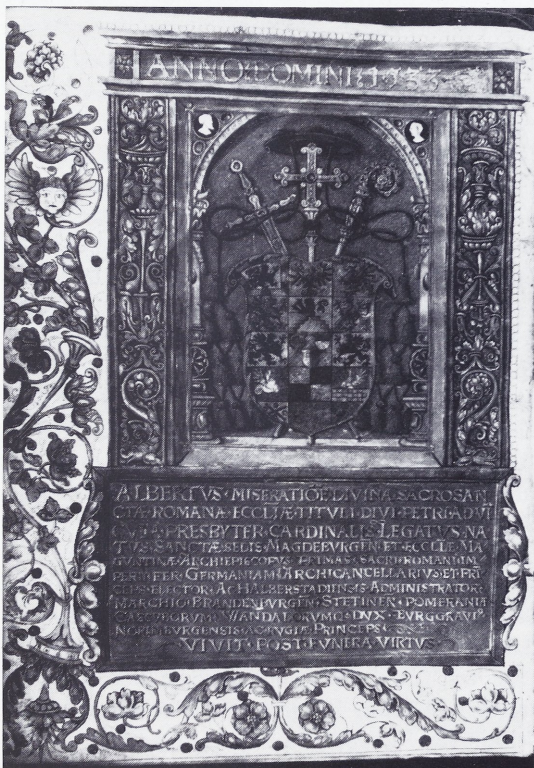 ANNO · DOMINI · 1533
ALBERTVS · MISERATIOE DIVINA · SACROSAN
CTÆ · ROMANÆ · ECCLIÆ · TITVLI · DIVI · PETRI · AD VI
PRESBYTER · CARDINALIS · LEGATVS · NA
TVS · SANCTÆ SEDIS · MAGDEBVRGEN · ET · ECCLE MA
GVNTINÆ · ARCHIEPISCOPVS · PRIMAS · SACRI · ROMANI IM
PERII PER · GERMANIAM · ARCHICANCELLARIVS · ET · PRI
CEPS · ELECTOR · AC HALBERSTADIENSIS · ADMINISTRATOR ·
MARCHIO · BRANDENBVRGEN · STETINEN · POMERANIÆ
WANDALORVMQ · DVX · BVRGGRAVI9
AC · RVGIÆ PRINCEPS
VIVIT · POST · FVNERA · VIRTVS